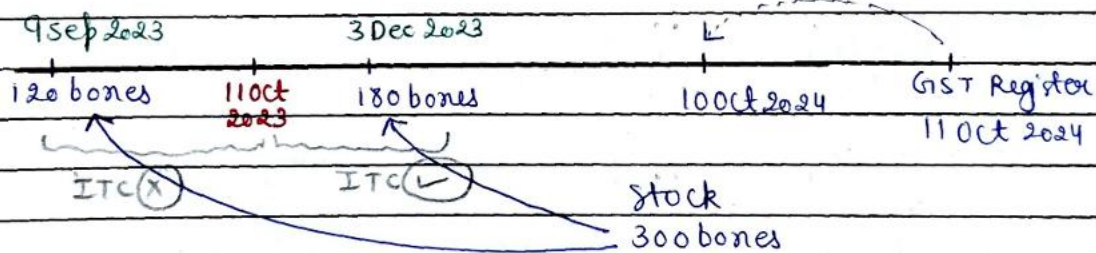 9 Sep 2023 3 Dec 2023
120 boxes 11 Oct 2023 180 boxes 10 Oct 2024 GST Register
11 Oct 2024
ITC (x) ITC (✓)
Stock
300 boxes